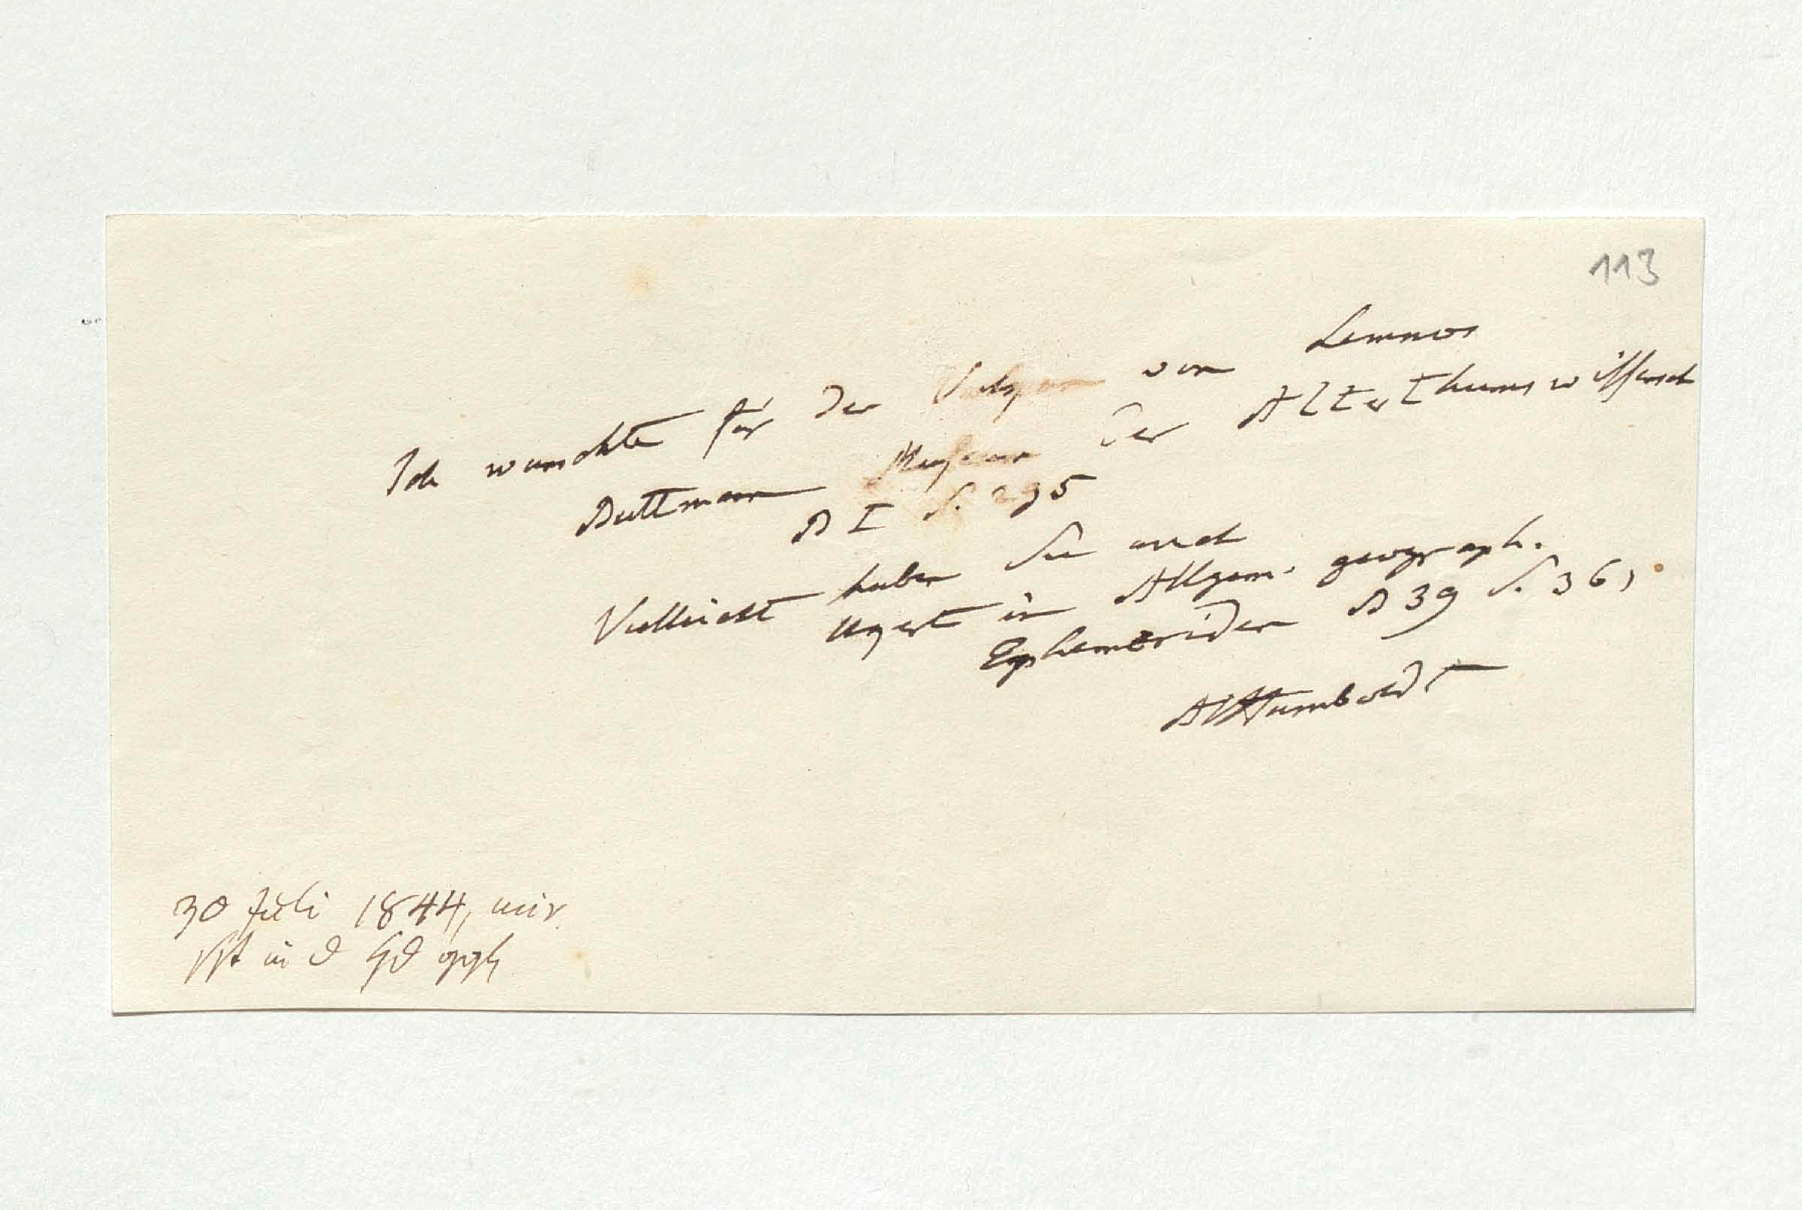 113
Ich wunschte für den Vulkan von Lemnos
Buttmann Museum der Alterthumswissensch
B I S. 295
Vielleicht haben Sie auch
Ukert in Allgem. geograph.
Ephemeriden B 39 S. 361
AlHumboldt
30 Juli 1844, mir
in d